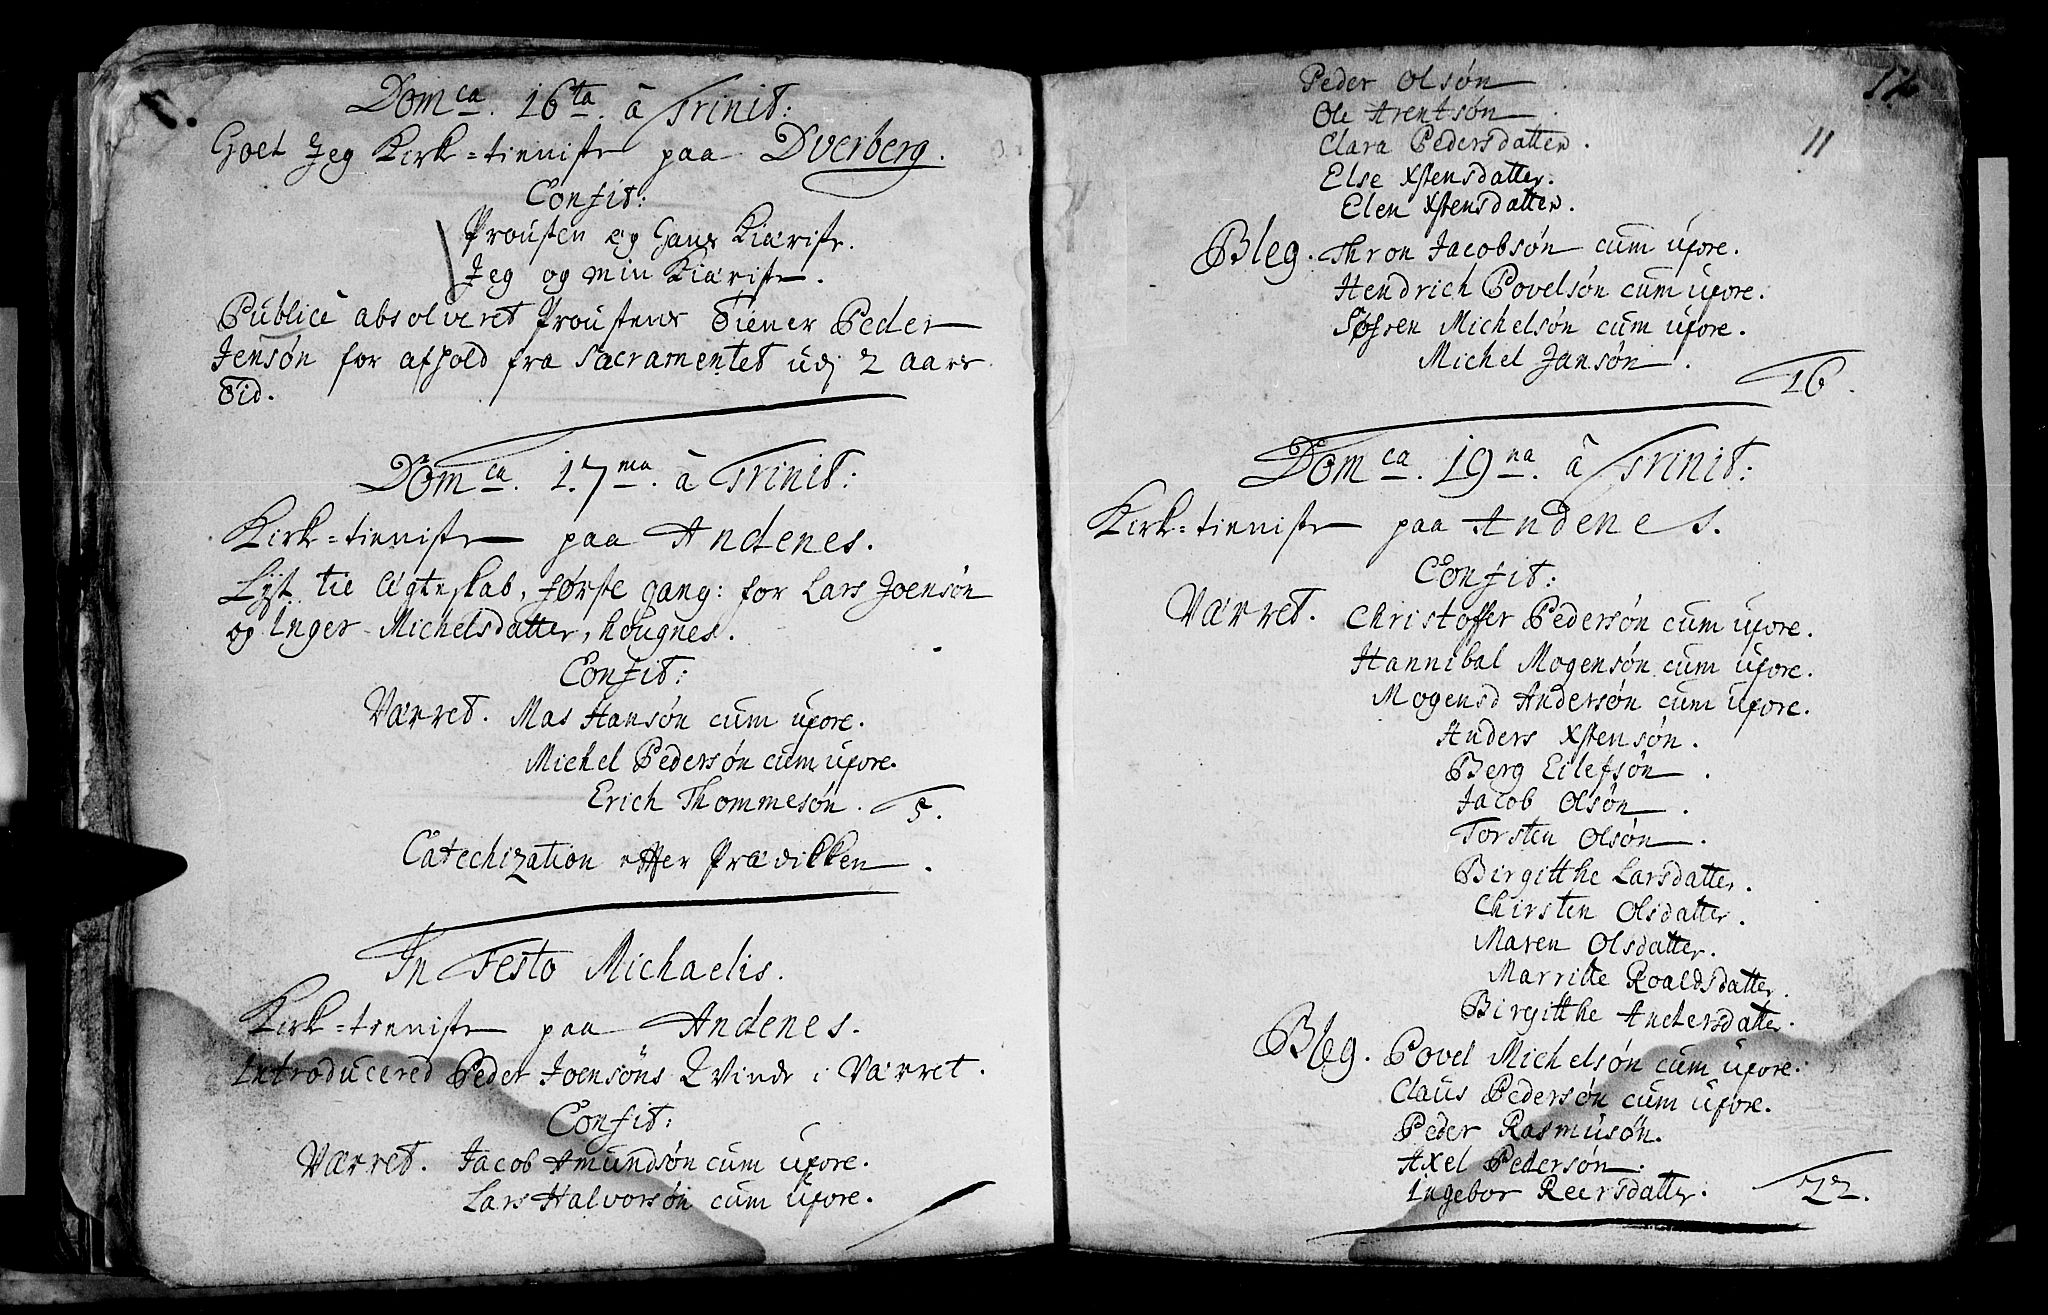 Dom ca. 16 ta. â Trinit:
Goet Jeg Kirk=tieniste paa Dverberg.
Confit:
Prousten og Hans Kiæriste.
Jeg og min Kiæriste.
Publicè absolveret Proustens Tiener Peder
Jensøn for afhold fra Sacramentet udj 2 aars
Tid.
Dom ca. 17 ma. â Trinit:
Kirk=tieniste paa Andenes.
Lyst til Ægteskab, første gang: for Lars Joensøn
og Inger Michelsdatter, hougnes.
Confit:
Værret. Mas Hansøn cum uxore.
Michel Pedersøn cum uxore.
Erich Thommesøn. 5.
Catechization efter Prædikken.
In Festo Michaelis.
Kirk=tieniste paa Andenes.
Introducered Peder Joensøns Qvinde i Værret.
Confit:
Værret. Jacob Amundsøn cum uxore.
Lars Halvorsøn cum uxore.
12
11
Peder Olsøn
Ole Arentsøn
Clara Pedersdatter.
Else Xstensdatter.
Elen Xstensdatter.
Bleg. Thron Jacobsøn cum uxore.
Hendrich Povelsøn cum uxore.
Søfren Michelsøn cum uxore.
Michel Jansøn. 16.
Dom ca. 19 na. â Trinit:
Kirk=tieniste paa Andenes.
Confit:
Værret. Christoffer Pedersøn cum uxore.
Hannibal Mogensøn cum uxore.
Mogensd Andersøn cum uxore.
Anders Xstensøn.
Berg Eilefsøn.
Jacob Olsøn.
Torsten Olsøn.
Birgitthe Larsdatter.
Chirsten Olsdatter.
Maren Olsdatter.
Marritte Roaldsdatter.
Birgitthe Andersdatter.
Bleg. Povel Michelsøn cum uxore.
Claus Pedersøn cum uxore.
Peder Rasmusøn.
Axel Pedersøn.
Ingebor Reersdatter. 22.